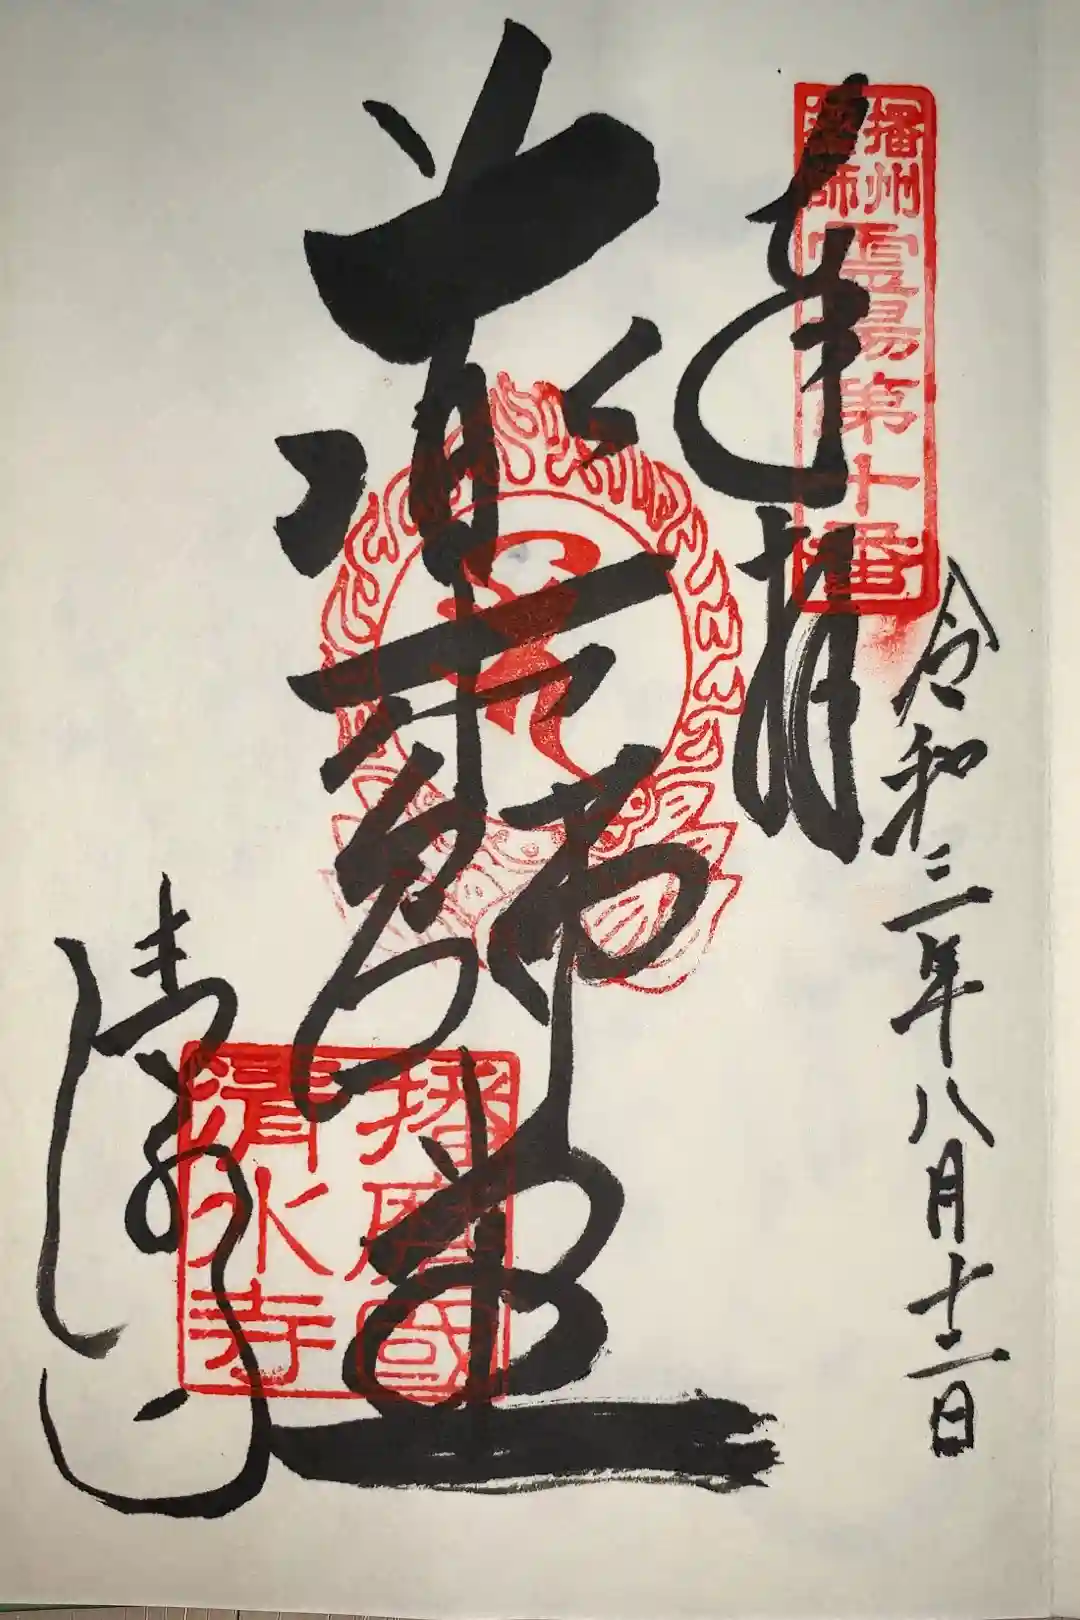 奉拝
播州
薬師
霊場第十番
令和三年八月十二日
薬師堂
播磨國
清水寺
清水寺